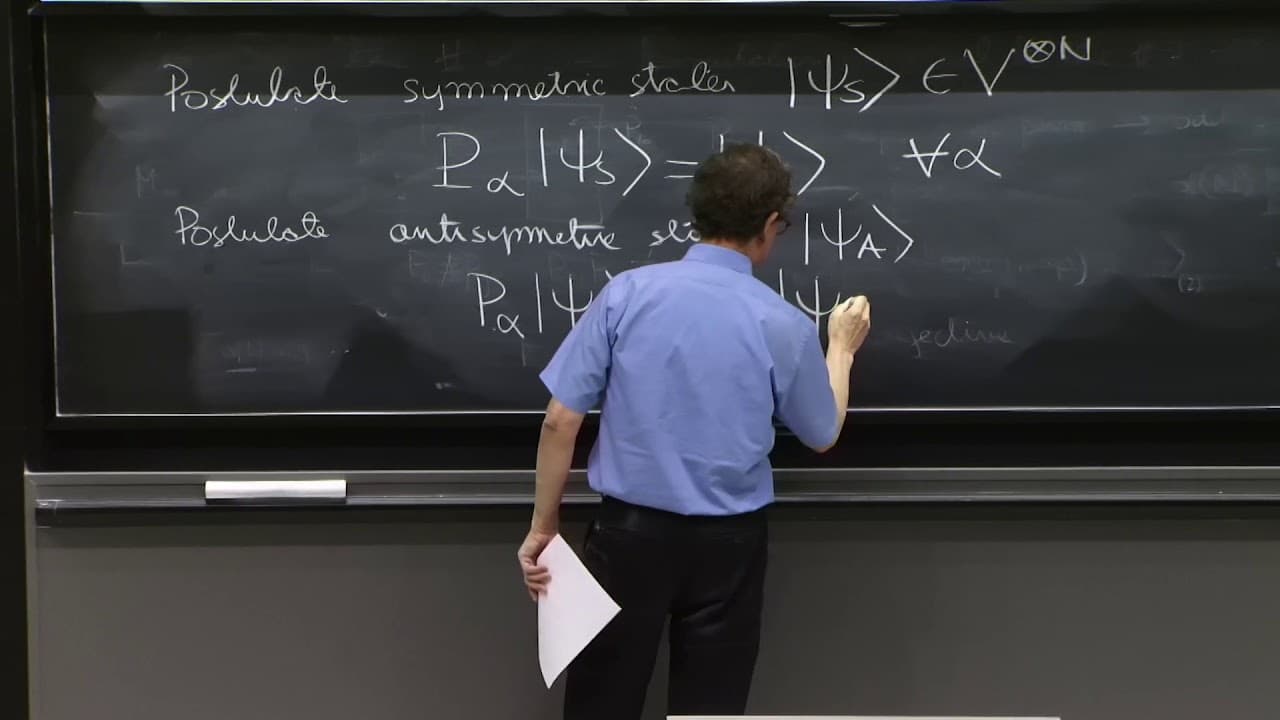 Postulate symmetric states |ψ_S⟩ ∈ V^{⊗N}
P_α |ψ_S⟩ = ⟩ ∀α
Postulate antisymmetric |ψ_A⟩
P_α |ψ |ψ